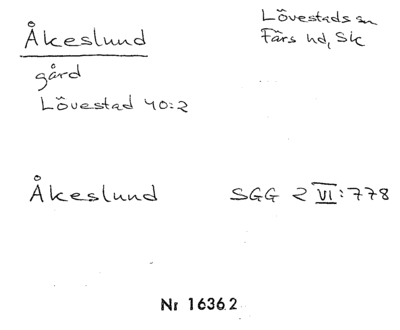 Åkeslund
Lövestads sn
Färs hd, Sk
gård
Lövestad 40:2
Åkeslund SGG 2 VI:778
Nr 1636.2